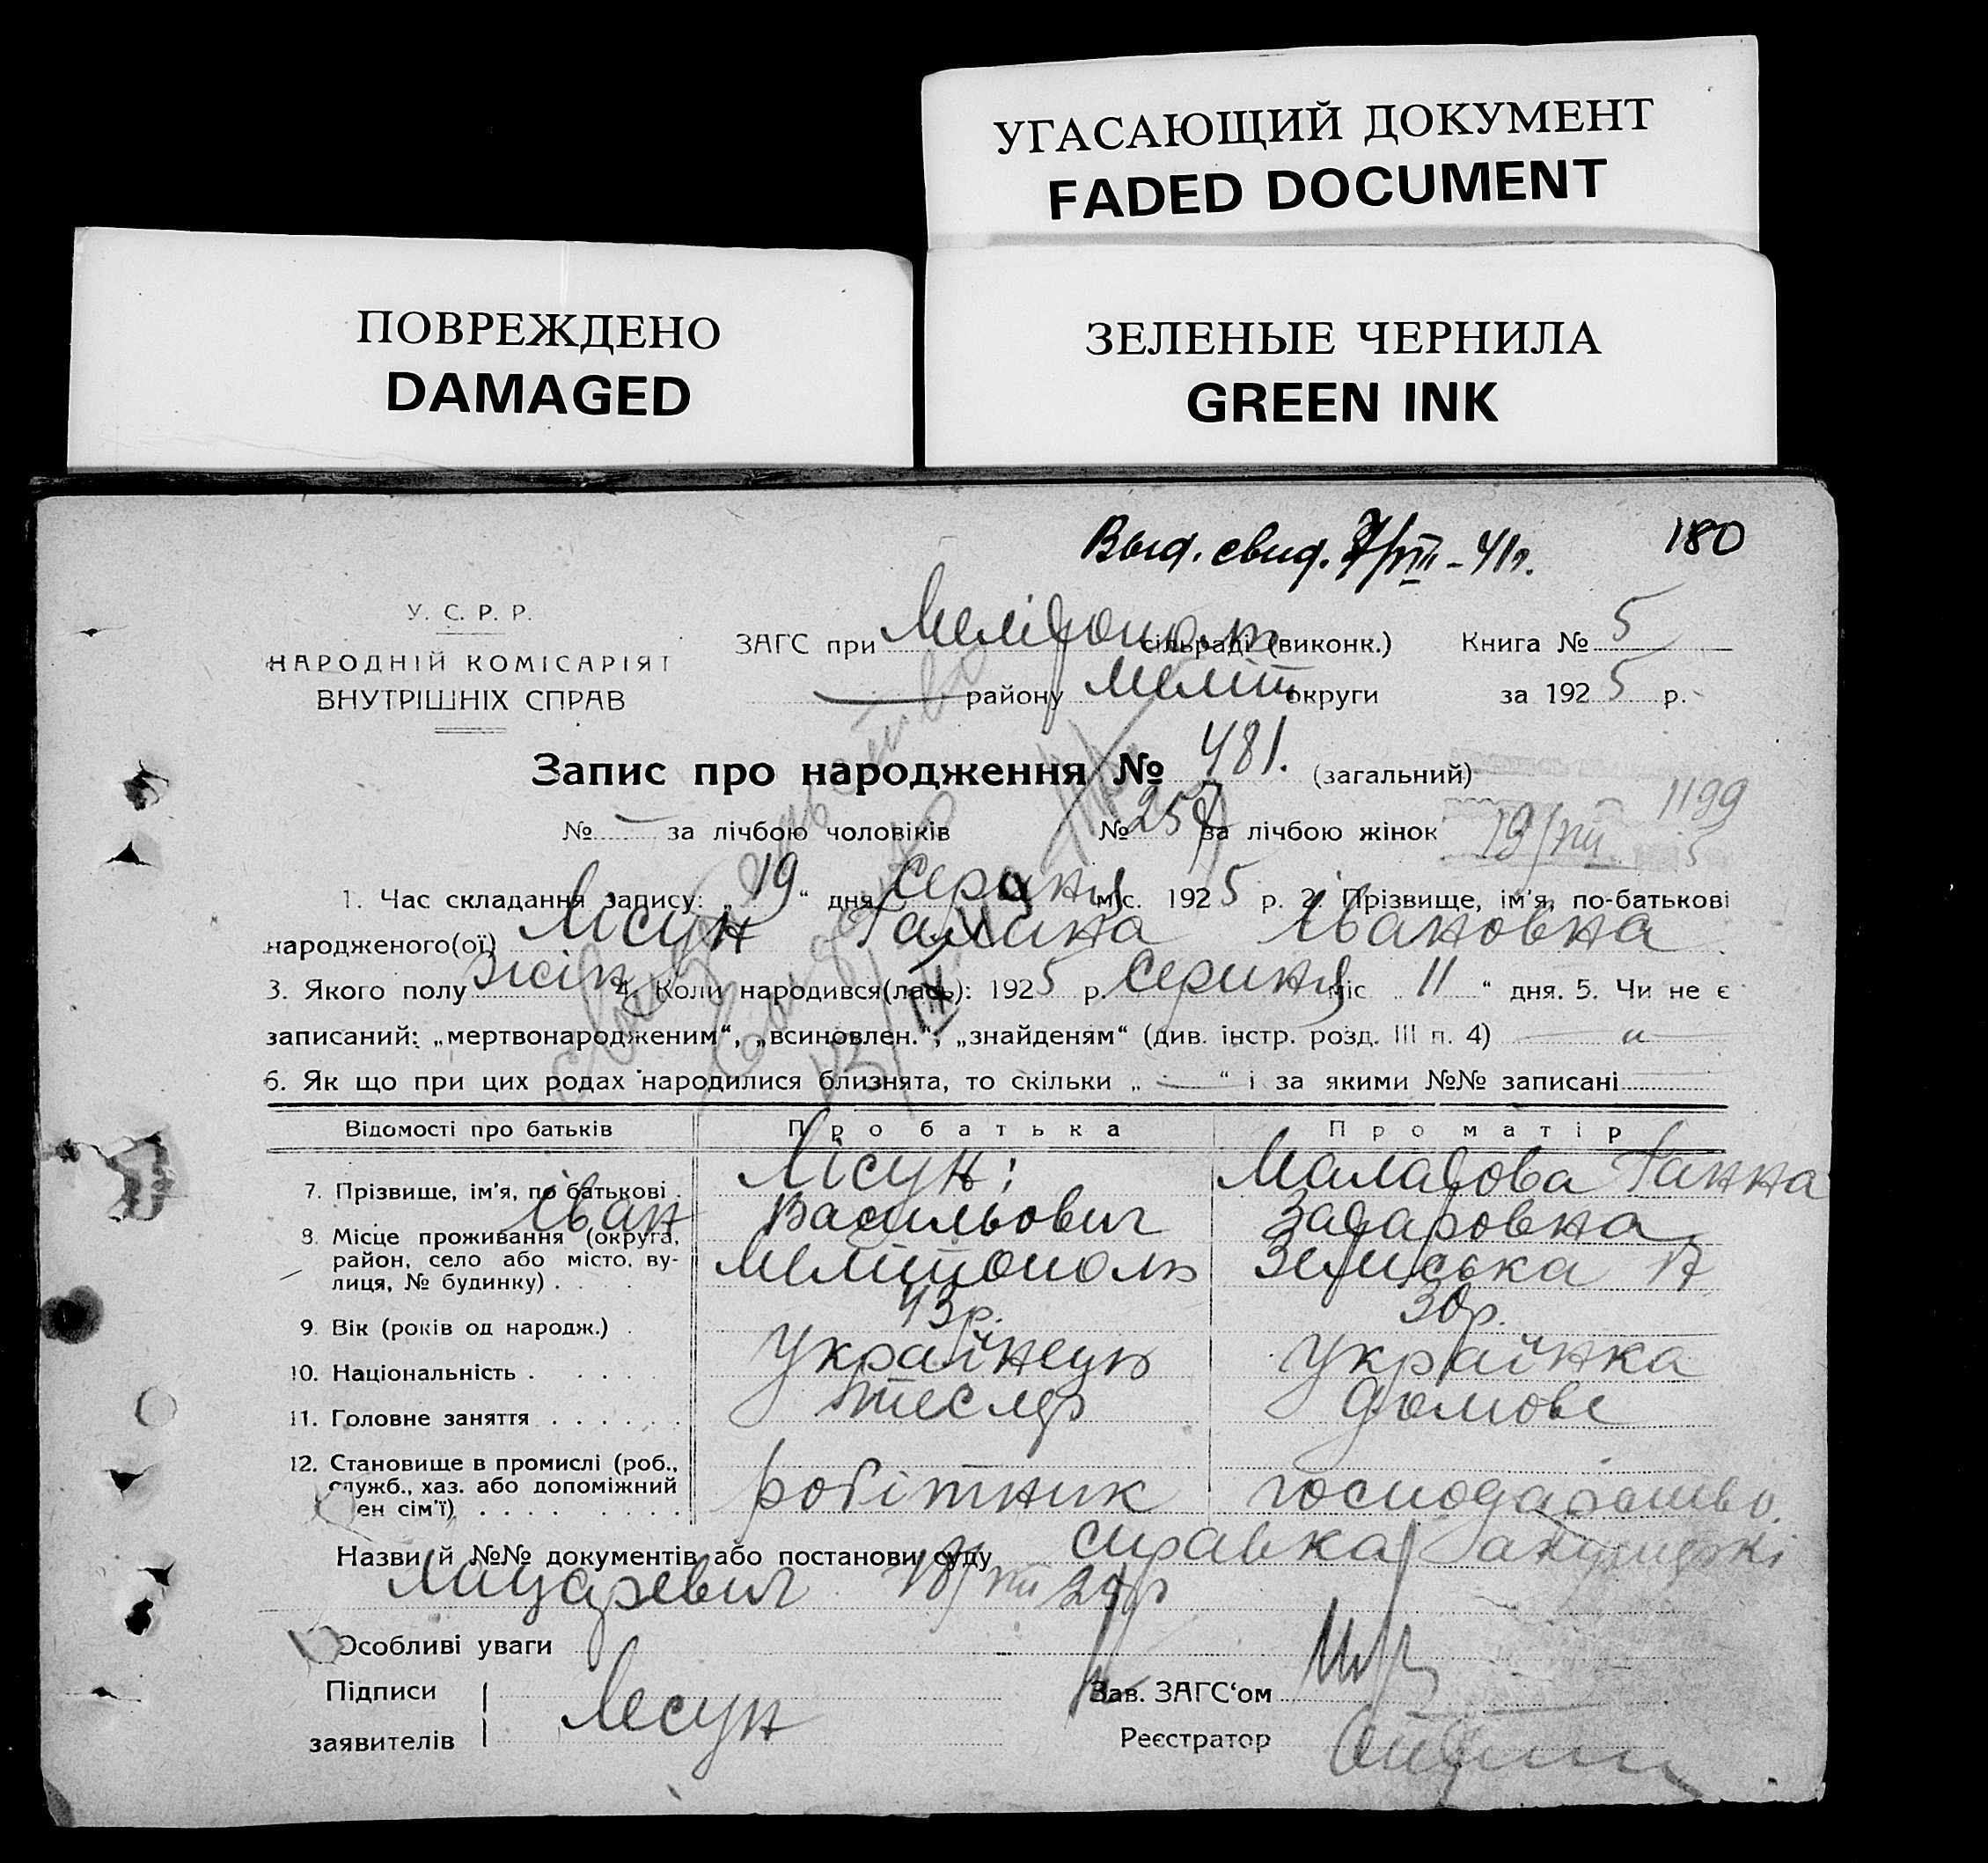 УГАСАЮЩИЙ ДОКУМЕНТ
FADED DOCUMENT
ПОВРЕЖДЕНО
DAMAGED
ЗЕЛЕНЫЕ ЧЕРНИЛА
GREEN INK
Выд. свид. 7/VIII-41г. 180
У. С. Р. Р.
НАРОДНІЙ КОМІСАРІЯТ
ВНУТРІШНІХ СПРАВ
ЗАГС при Мелітополь сільраді (виконк.) Книга № 5
району Меліт округи за 1925 р.
Запис про народження № 481. (загальний)
№ — за лічбою чоловіків № 257 за лічбою жінок
1199
19/VIII 5
1. Час складання запису: „19“ дня Серпня міс. 1925 р. 2. Прізвище, ім'я, по-батькові
народженого(ої) Лісун Галина Івановна
3. Якого полу жін 4. Коли народився(лась): 1925 р. Серпня міс „11“ дня. 5. Чи не є
записаний: „мертвонародженим“, „всиновлен.“, „знайденям“ (див. інстр. розд. III п. 4) — „ —
6. Як що при цих родах народилися близнята, то скільки „—“ і за якими №№ записані
Відомості про батьків Про батька Про матір
7. Прізвище, ім'я, по батькові Лісун; Іван Васильович Малахова Ганна Захаровна
8. Місце проживання (округа, район, село або місто, вулиця, № будинку) Мелітополь
9. Вік (років од народж.) 43р. 30р.
10. Національність Українець Українка
11. Головне заняття тесляр домове
12. Становище в промислі (роб., служб., хаз. або допоміжний ен сім'ї) робітник господарство.
Назви й №№ документів або постанови суду справка акушерки
18/VIII
Особливі уваги
Підписи заявителів Лесун
Зав. ЗАГС'ом
Реєстратор